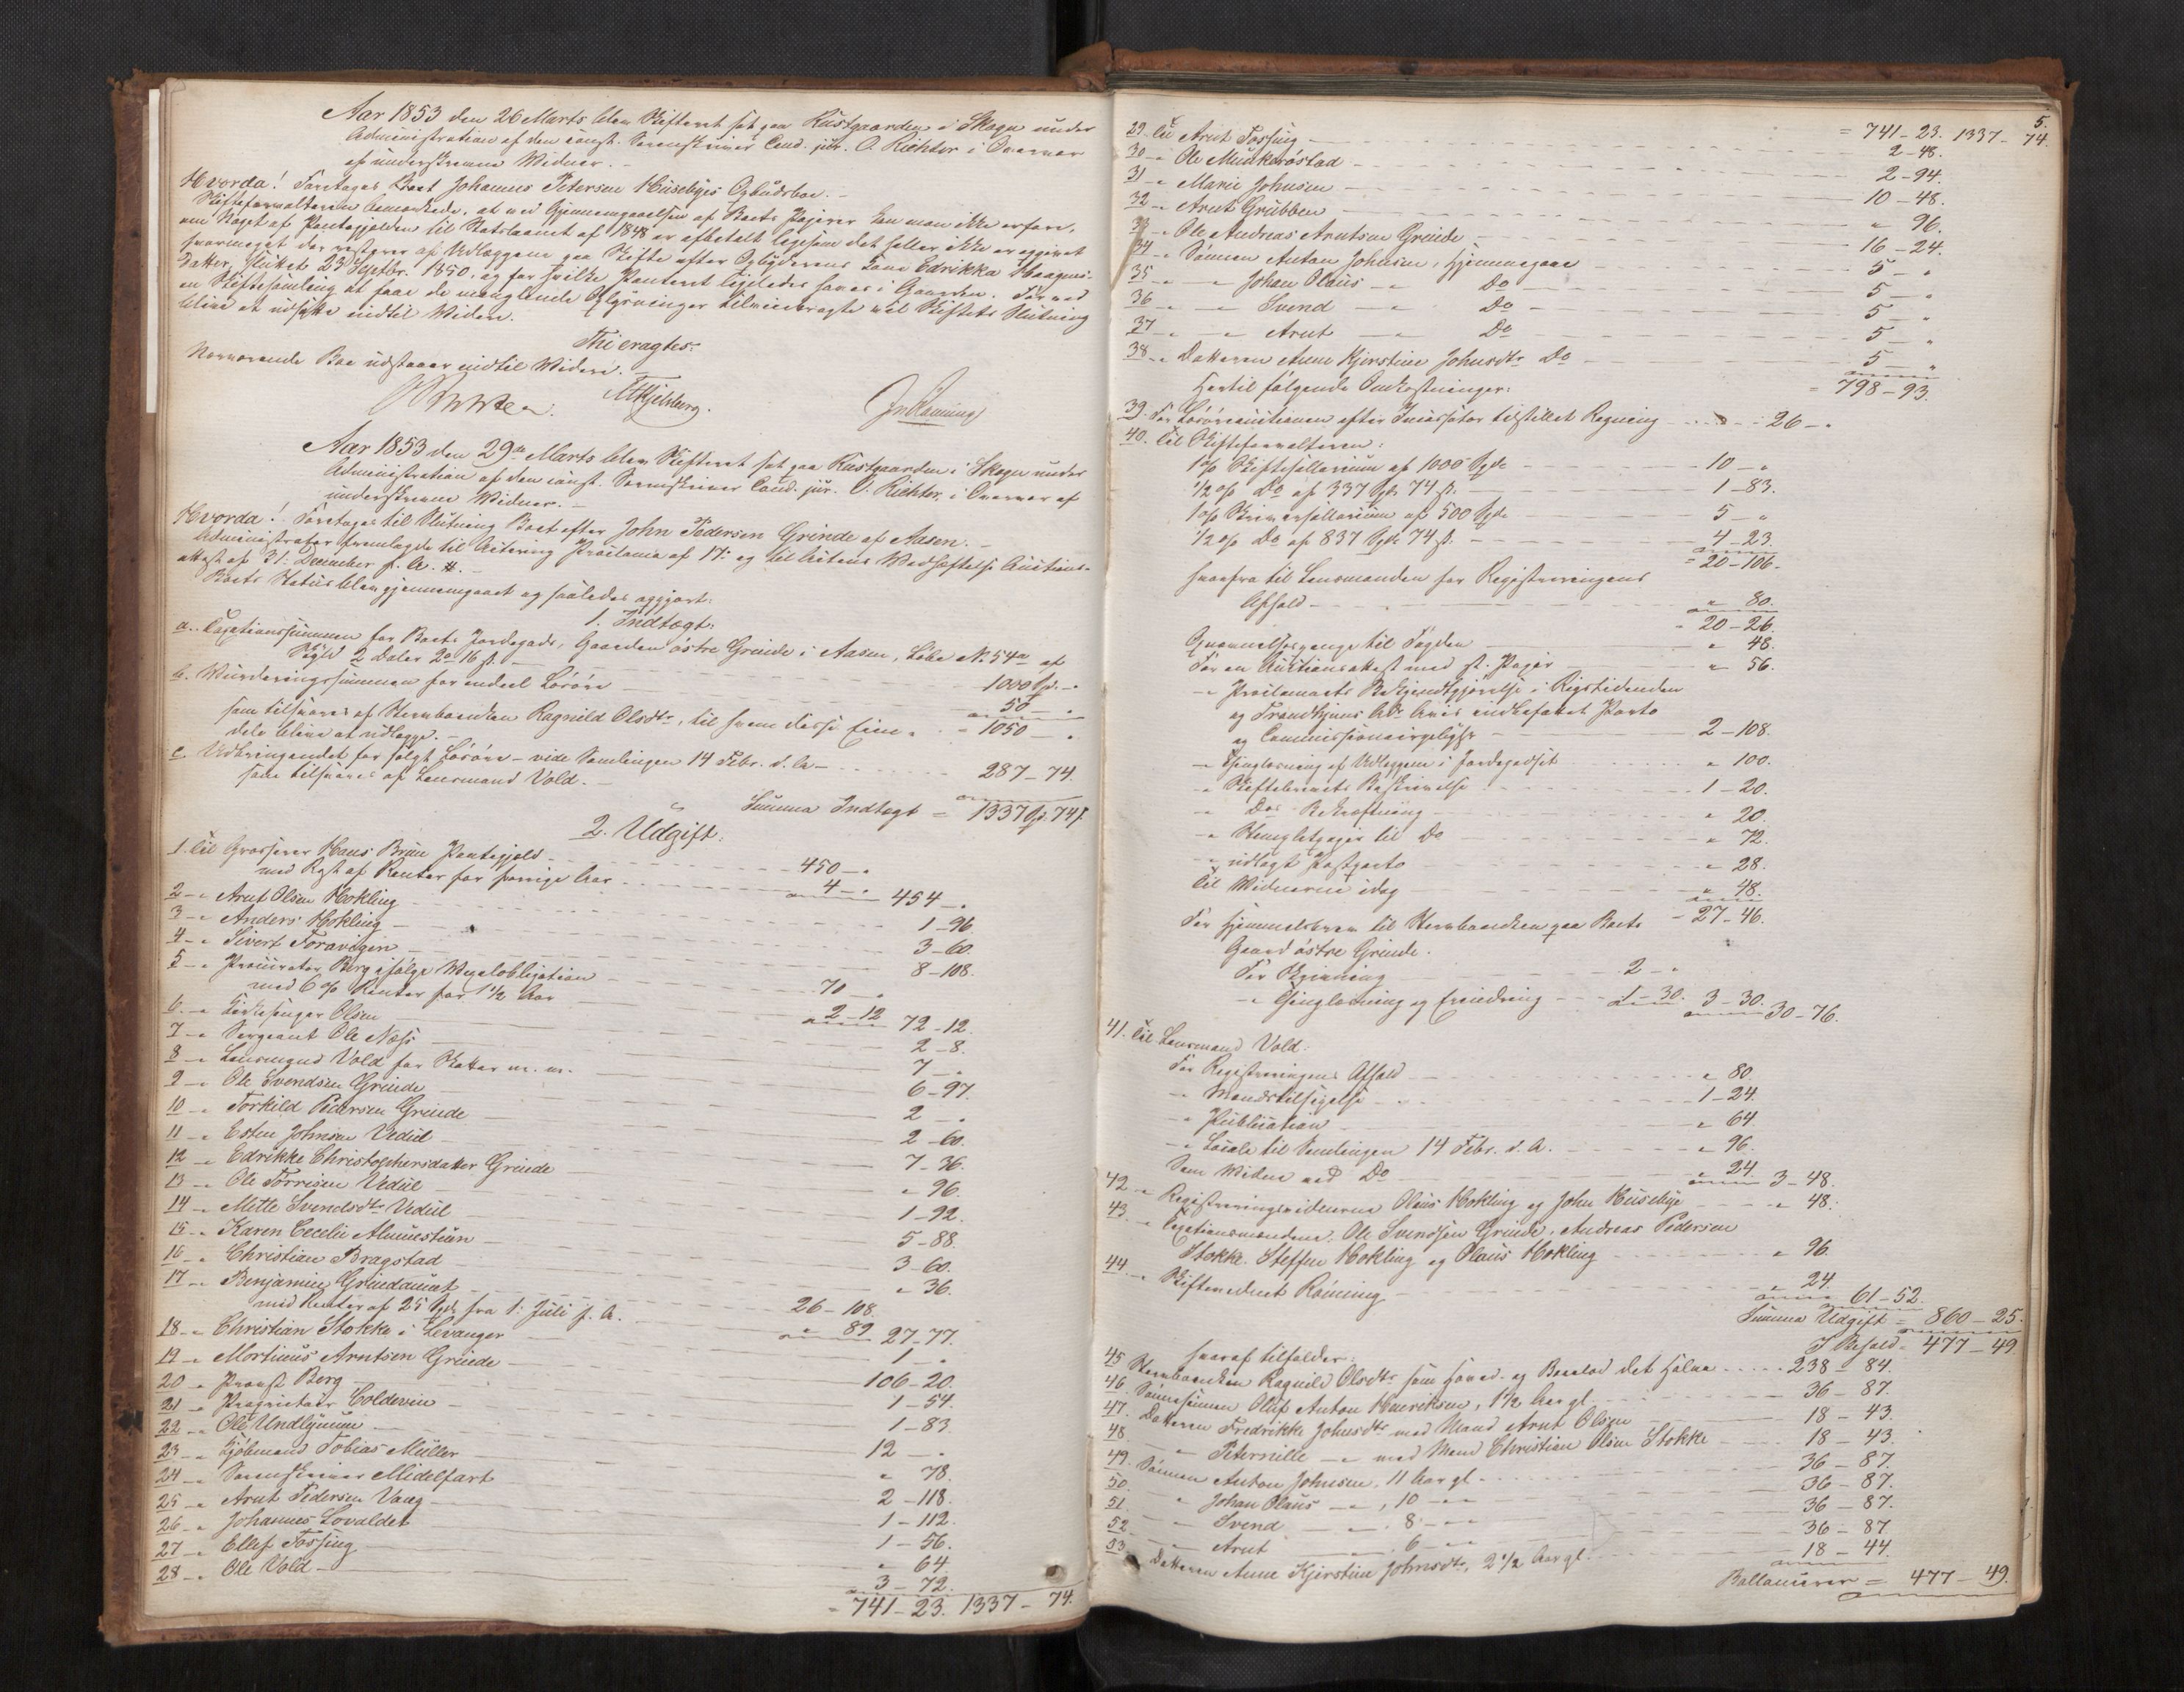 Aar 1853 den 26 Marts blev Skifteret sat paa Rustgaarden i Skogn under
Administration af den const. Sorenskriver Cand. jur. O. Richter i Overvær
af underskrevne Vidner. –
Hvorda! Foretoges Boet Johannes Petersen Husebyes Opbudsboe. –
Skifteforvalteren bemærkede, at ved Gjennemgaaelsen af Boets Papirer kan man ikke erfare,
om Noget af Pantegjælden til Statslaanet af 1848 er afbetalt ligesom det heller ikke er opgivet
hvormeget der resterer af Udlæggene paa Skifte efter Opbyderens Kone Edrikka Haagens-
datter, sluttet 23 Septbr. 1850, og for hvilke Panteret ligeledes haves i Gaarden. Før ved
en Skiftesamling at faae de manglende Oplysninger tilveiebragte vil Skiftets Slutning
blive at udsætte indtil Videre.
Thi eragtes:
Nærværende Boe udstaaer indtil Videre. –
O Richter. Kjelsberg. Jn Rømning
Aar 1853 den 29de Marts blev Skifteret sat paa Rustgaarden i Skogn under
Administration af den const. Sorenskriver Cand. jur. O. Richter i Overvær af
underskrevne Vidner. –
Hvorda! Foretoges til Slutning Boet efter John Pedersen Grinde af Aasen. –
Administrator fremlagde til Acitering Proclama af 17: og til Actens Vedhæftelse Auctions-
attest af 31: December f. A. #. –
Boets Status blev gjennemgaaet og saaledes opgjort:
1. Indtægt:
a.. Taxationssummen for Boets Jordegods, Gaarden østre Grinde i Aasen, Løbe No. 54a af
Skyld 2 Daler 2 16 s. – 1000 Spd. – "
b. Vurderingssummen for endeel Løsøre – 50 – "
som tilsvares af Stervboenken Ragnild Olsdtr., til hvem disse Eien- = 1050 – "
dele bliver at udlægge. –
c. Udbringendet for solgt Løsøre – vide Samlingen 14 Febr. d. A. – 287 – 74.
som tilsvares af Lensmand Vold. –
Summa Indtægt = 1337 Sp. 74 s.
2. Udgift:
1. Til Grosserer Hans Bruun Pantegjæld – 450 – "
med Rest af Renter for forrige Aar – 4 – " 454 – "
2 – " Arnt Olsen Hokling – 1 – 96.
3 – " Anders Hokling – 3 – 60.
4 – " Sivert Foravigen – 8 – 108.
5 – " Procurator Berg ifølge Vexelobligation – 70 – "
med 6 % Renter for 1/2 Aar – 2 – 12 72 – 12.
6 – " Kirkesanger Olsen – 2 – 8.
7 – " Sergeant Ole Næss – 7 – "
8 – " Lensmand Vold for Skatter m. m. – 6 – 97.
9 – " Ole Svendsen Grinde – 2 – "
10 – " Torkild Pedersen Grinde – 2 – 60.
11 – " Esten Johnsen Vedul – 7 – 36.
12 – " Edrikke Christophersdatter Grinde – " 96.
13 – " Ole Torrisen Vedul – 1 – 92.
14 – " Mette Svendsdtr Vedul – 5 – 88.
15 – " Karen Cecelie Almuestuen – 3 – 60.
16 – " Christian Bragstad – " 36.
17 – " Benjamin Grindaunet – 26 – 108
med Renter af 25 Spd. fra 1: Juli f. A. – " 89 27 – 77.
18 – " Christian Stokke i Levanger – 1 – "
19 – " Mortinus Arntsen Grinde – 106 – 20.
20 – " Provst Berg – 1 – 54.
21 – " Proprietair Coldevin – 1 – 83.
22 – " Ole Undlynum – 12 – "
23 – " Kjøbmand Tobias Müller – " 78.
24 – " Sorenskriver Midelfart – 2 – 118.
25 – " Arnt Pedersen Vang – 1 – 112.
26 – " Johannes Lovaldet – 1 – 56.
27 – " Ellef Fossing – " 64.
28 – " Ole Vold – 3 – 72.
= 741 – 23. 1337 – 74.
5.
= 741 – 23. 1337 – 74.
29. Til Arnt Fossing – 2 – 48.
30 – " Ole Munkerøstad – 2 – 94.
31 – " Marie Johnsen – 10 – 48.
32 – " Arnt Grubben – " 96.
33 – " Ole Andreas Arntsen Grinde – 16 – 24.
34 – " Sønnen Anton Johnsen, Hjemmegave – 5 – "
35 – " – " Johan Olaus – " Do – 5 – "
36 – " – " Svend – " Do – 5 – "
37 – " – " Arnt – " Do – 5 – "
38 – " Datteren Anne Kjerstine Johnsdtr. Do – 5 – "
= 798 – 93.
Hertil følgende Omkostninger:
39. For Løsøreauctionen efter Incassator tilstillet Regning – 26 – "
40. Til Skifteforvalteren:
1 o/o Skiftesallarium af 1000 Spd. – 10 – "
1/2 o/o Do af 337 Spd. 74 s. – 1 – 83.
1 o/o Skriversallarium af 500 Spd. – 5 – "
1/2 o/o Do af 837 Spd. 74 s. – 4 – 23.
= 20 – 106.
hvorfra til Lensmanden for Registreringens
Afhold – " 80.
= 20 – 26.
Qvamelsespenge til Fogden – " 48.
For en Auctionsattest med st. Papir – " 56.
– " Proclamaets Bekjendtgjørelse i Rigstidenden
og Trondhjems Adr. Avis indbefattet Porto
og Commissionairgebyhr – 2 – 108.
– " Thinglæsning af Udlæggene i Jordegodset – " 100.
– " Skiftebrevets Beskrivelse – 1 – 20.
– " Dos Bekræftning – " 20.
– " Stempletpapir til Do – " 72.
– " udlagt Postporto – " 28.
Til Vidnerne idag – " 48.
= 27 – 46.
For Hjemmelsbrev til Stervboenken paa Boets
Gaard østre Grinde.
For Skrivning – 2 – "
– " Thinglæsning og Erindring – 1 – 30. 3 – 30. 30 – 76.
41. Til Lensmand Vold:
For Registreringens Afhold – " 80
– " Mændstilsigelse – 1 – 24.
– " Publication – " 64
– " Locale til Samlingen 14 Febr. d. A. – " 96.
Som Vidne ved Do – " 24 3 – 48.
42 – " Registreringsvidnerne Olaus Hokling og John Husebye – " 48.
43. – " Taxationsmændene: Ole Svendsen Grinde, Andreas Pedersen
Stokke, Steffen Hokling og Olaus Hokling – " 96.
44 – " Skiftevidnet Rømning – " 24.
61 – 52.
Summa Udgift = 860 – 25.
I Behold = 477 – 49.
hvoraf tilfalder:
45 Stervboenken Ragnild Olsdtr. som Hoved- og Boeslod det Halve – 238 – 84.
46. Sønnesønnen Oluf Anton Henriksen, 1 1/2 Aar gl. – 36 – 87.
47. Datteren Fredrikke Johnsdtr. med Mand Arnt Olsen – 18 – 43.
48. – " Peternille – " med Mand Christian Olsen Stokke – 18 – 43.
49. Sønnen Anton Johnsen, 11 Aar gl. – 36 – 87.
50. – " Johan Olaus – ", 10 – " – 36 – 87.
51. – " Svend – " 8 – " – 36 – 87.
52. – " Arnt – " 6 – " – 36 – 87
53. Datteren Anne Kjerstine Johnsdtr., 2 1/2 Aar gl. – 18 – 44.
Ballancerer = 477 – 49.